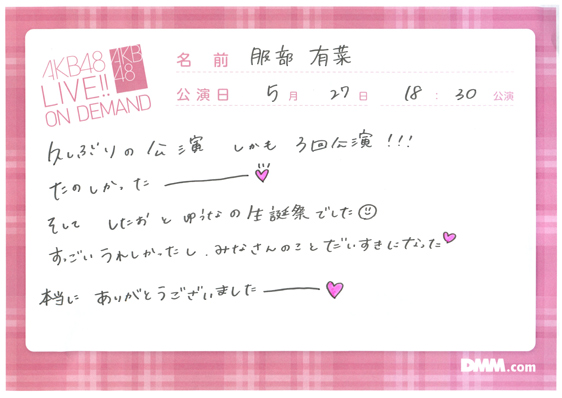 AKB48
LIVE!!
ON DEMAND
AKB
48
名 前 服部 有菜
公演日 5月 27日 18:30 公演
久しぶりの公演 しかも 3回公演!!!
たのしかった ――――
そして したおと ゆうなの生誕祭でした
すっごいうれしかったし、みなさんのことだいすきになった
本当に ありがとうございました ――――
DMM.com